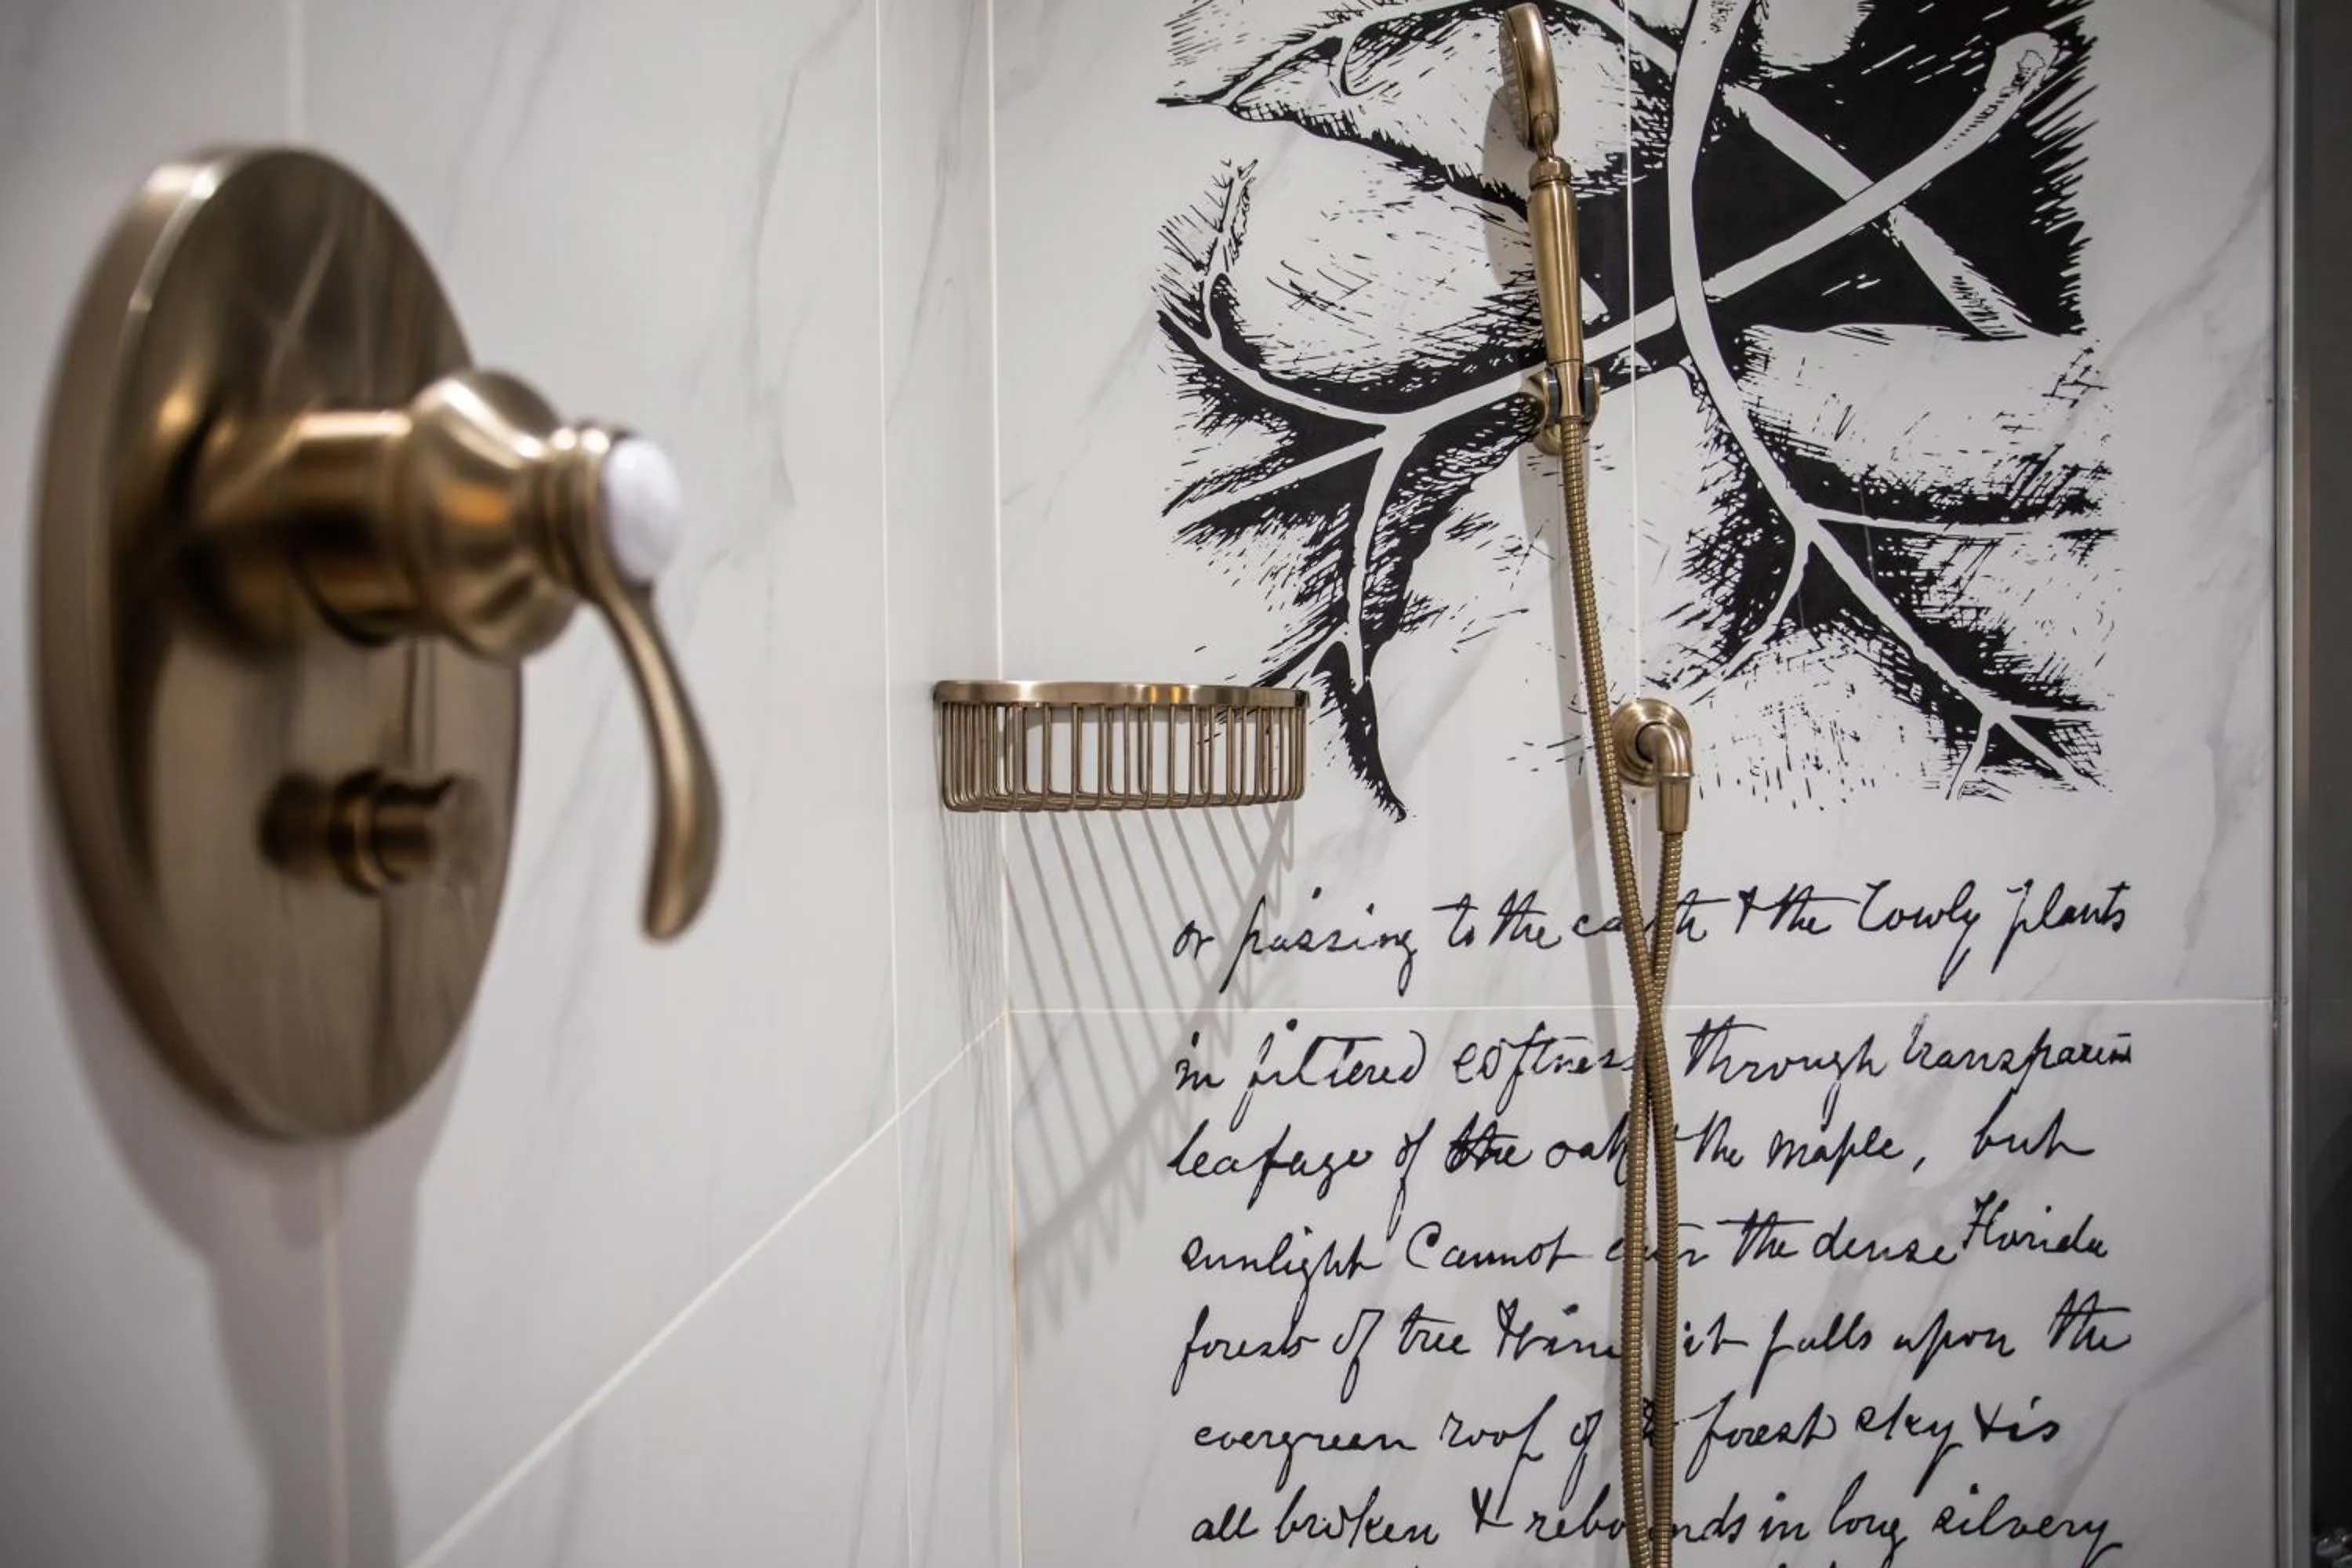 or passing to the earth & the lowly plants
in filtered softness through transparent
leafage of the oak & the maple, but
sunlight cannot enter the dense Florida
forests of tree & vine it falls upon the
evergreen roof of the forest sky & is
all broken & rebounds in long silvery